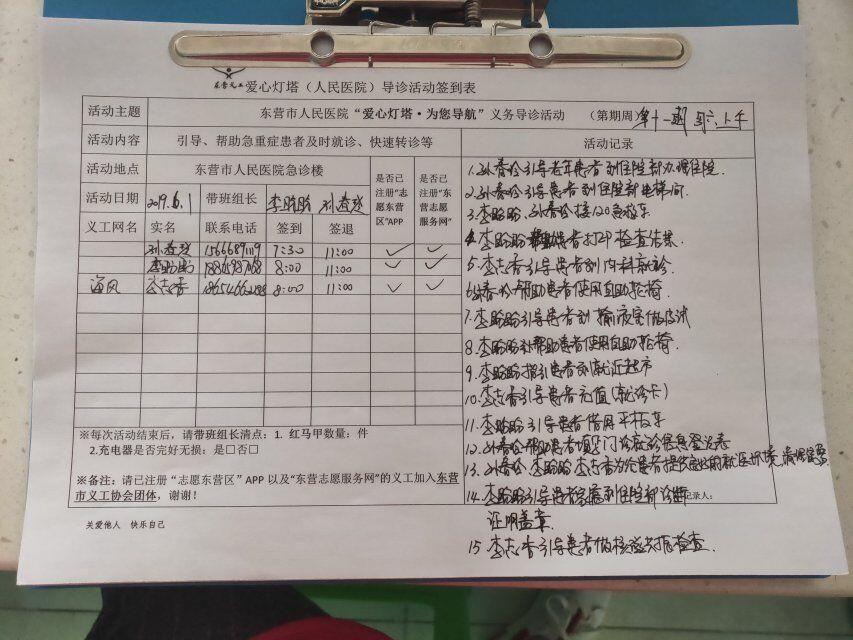 东营义工 爱心灯塔（人民医院）导诊活动签到表
活动主题 东营市人民医院“爱心灯塔·为您导航”义务导诊活动 （第期周） 第十一期 周六上午
活动内容 引导、帮助急重症患者及时就诊、快速转诊等 活动记录
活动地点 东营市人民医院急诊楼
是否已注册“志愿东营区”APP
是否已注册“东营志愿服务网”
活动日期 2019.6.1 带班组长 李盼盼 孙春玲
义工网名 实名 联系电话 签到 签退
孙春玲 7:30 11:00 ✓ ✓
李盼盼 8:00 11:00 ✓ ✓
海风 李志香 8:00 11:00 ✓ ✓
※每次活动结束后，请带班组长清点：1. 红马甲数量：件
2.充电器是否完好无损：是□否□
※备注：请已注册“志愿东营区”APP 以及“东营志愿服务网”的义工加入东营
市义工协会团体，谢谢！
1.孙春玲引导老年患者到住院部办理住院
2.孙春玲引导患者到住院部电梯间
3.李盼盼、孙春玲接120急救车
4.李盼盼帮助患者打印检查结果
5.李志香引导患者到内科就诊
6.孙春玲帮助患者使用自助轮椅
7.李盼盼引导患者到输液室做皮试
8.李盼盼帮助患者使用自助轮椅.
9.李盼盼指引患者到就近超市
10.李志香引导患者充值(就诊卡)
11.李盼盼引导患者借用平板车
12.孙春玲帮助患者填写门诊就诊信息登记表
13.孙春玲、李盼盼、李志香为患者提供就医环境
14.李盼盼引导患者家属到住院部诊断
证明盖章.
记录人：
15.李志香引导患者做核磁共振检查.
关爱他人 快乐自己